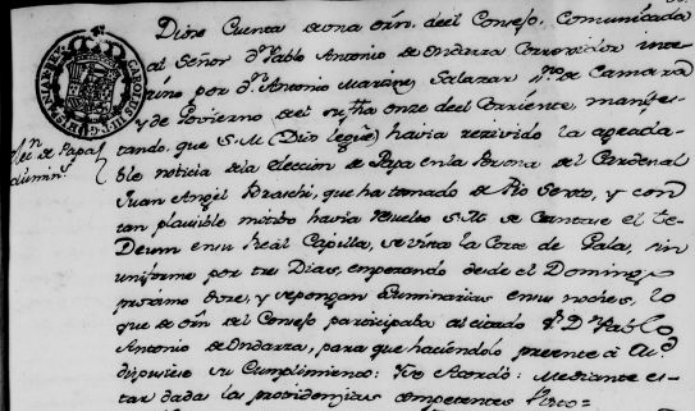 Diose Cuenta de una orn. del Consejo, Comunicada
al Señor Dn. Pablo Antonio de Ondarza Corregidor inte-
rino por Dn. Antonio Martinez Salazar srio. de Camara
y de Govierno del su fha once del Corriente, manifes-
tando, que S.M. (Dios legūe) havia recivido la agrada-
ble noticia dela eleccion de Papa en la Persona del Cardenal
Juan Angel Braschi, que ha tomado de Pio Sexto, y con
tan plausible motibo havia resuelto S.M. se Cantase el te-
Deum en su Real Capilla, se vista la Corte de Gala, sin
uniforme por tres Dias, empezando desde el Domingo
proximo doze, y se pongan Luminarias en sus noches, lo
que de orn. del Consejo participaba al citado Sr. D. Pablo
Antonio de Ondarza, para que haciendolo presente á
dispusiese su Cumplimiento: Acordó: Mediante es-
tar dadas las providencias competentes Visto=
eleon. de Papa
CAROLUS III D.G. HISPANIAR. REX